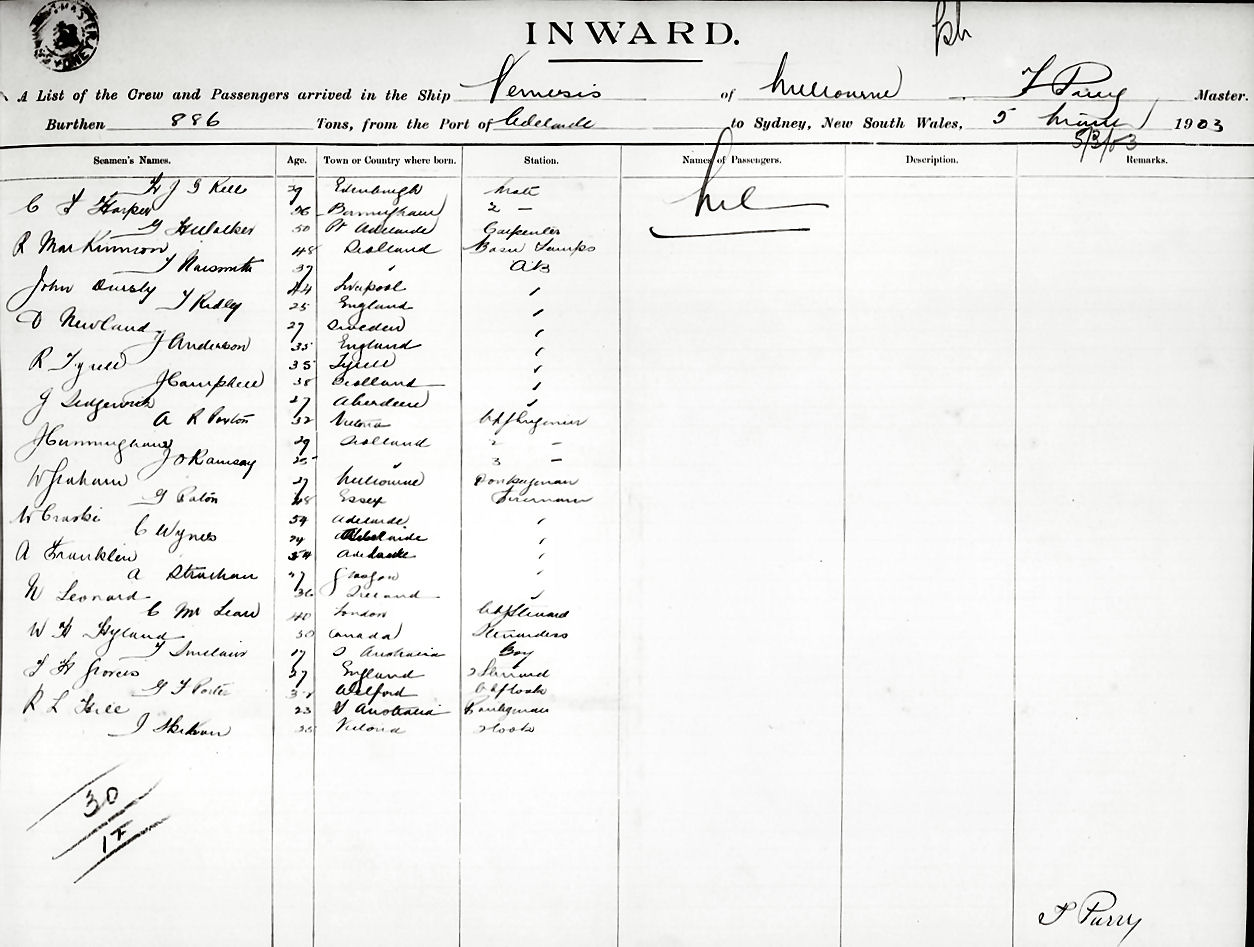 INWARD.
A List of the Crew and Passengers arrived in the Ship Nemesis of Melbourne, T Parry Master.
Burthen 886 Tons, from the Port of Adelaide to Sydney, New South Wales, 5 March 1903
5/3/03
Seamen's Names. Age. Town or Country where born. Station. Names of Passengers. Description. Remarks.
29 Edinburgh Mate Nil
C F Harper 36 Birmingham 2 —
50 Pt Adelaide Carpenter
R MacKinnon 48 Scotland Lamps
T Naismith 37 " AB
John 44 Liverpool "
T Ridley 25 England "
D Newland 27 Sweden "
J Anderson 35 England "
R Tyrell 35 Tyrell "
J Campbell 38 Scotland "
J Sedgewick 27 Aberdeen "
A R Paxton 32 Victoria Chf Engineer
J Cunningham 29 Scotland 2 —
J O Ramsay 25 " 3 —
W Graham 27 Melbourne Donkeyman
G Paton 48 Essex Fireman
54 Adelaide "
C Wynes 24 Adelaide "
A Franklin 54 Adelaide "
A Strachan 27 Glasgow "
N Leonard 36 Ireland "
C Mc Lean 40 London Chf Steward
W H Hyland 30 Canada Stewardess
T Sinclair 17 S Australia Boy
T H Groves 37 England 2 Steward
G F Porter Welford Chf Cook
R L Hill 23 S Australia Pantryman
Victoria 2 Cook
30
T Parry